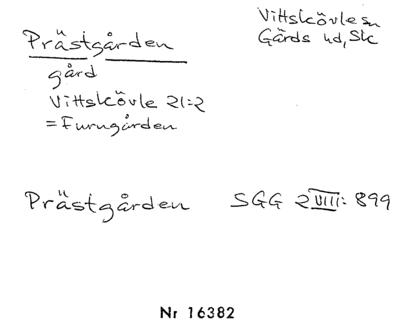 Vittskövle sn
Gärds hd, Skc
Prästgården
gård
Vittskövle 21:2
= Furugården
Prästgården SGG 2 VIII: 899
Nr 16382